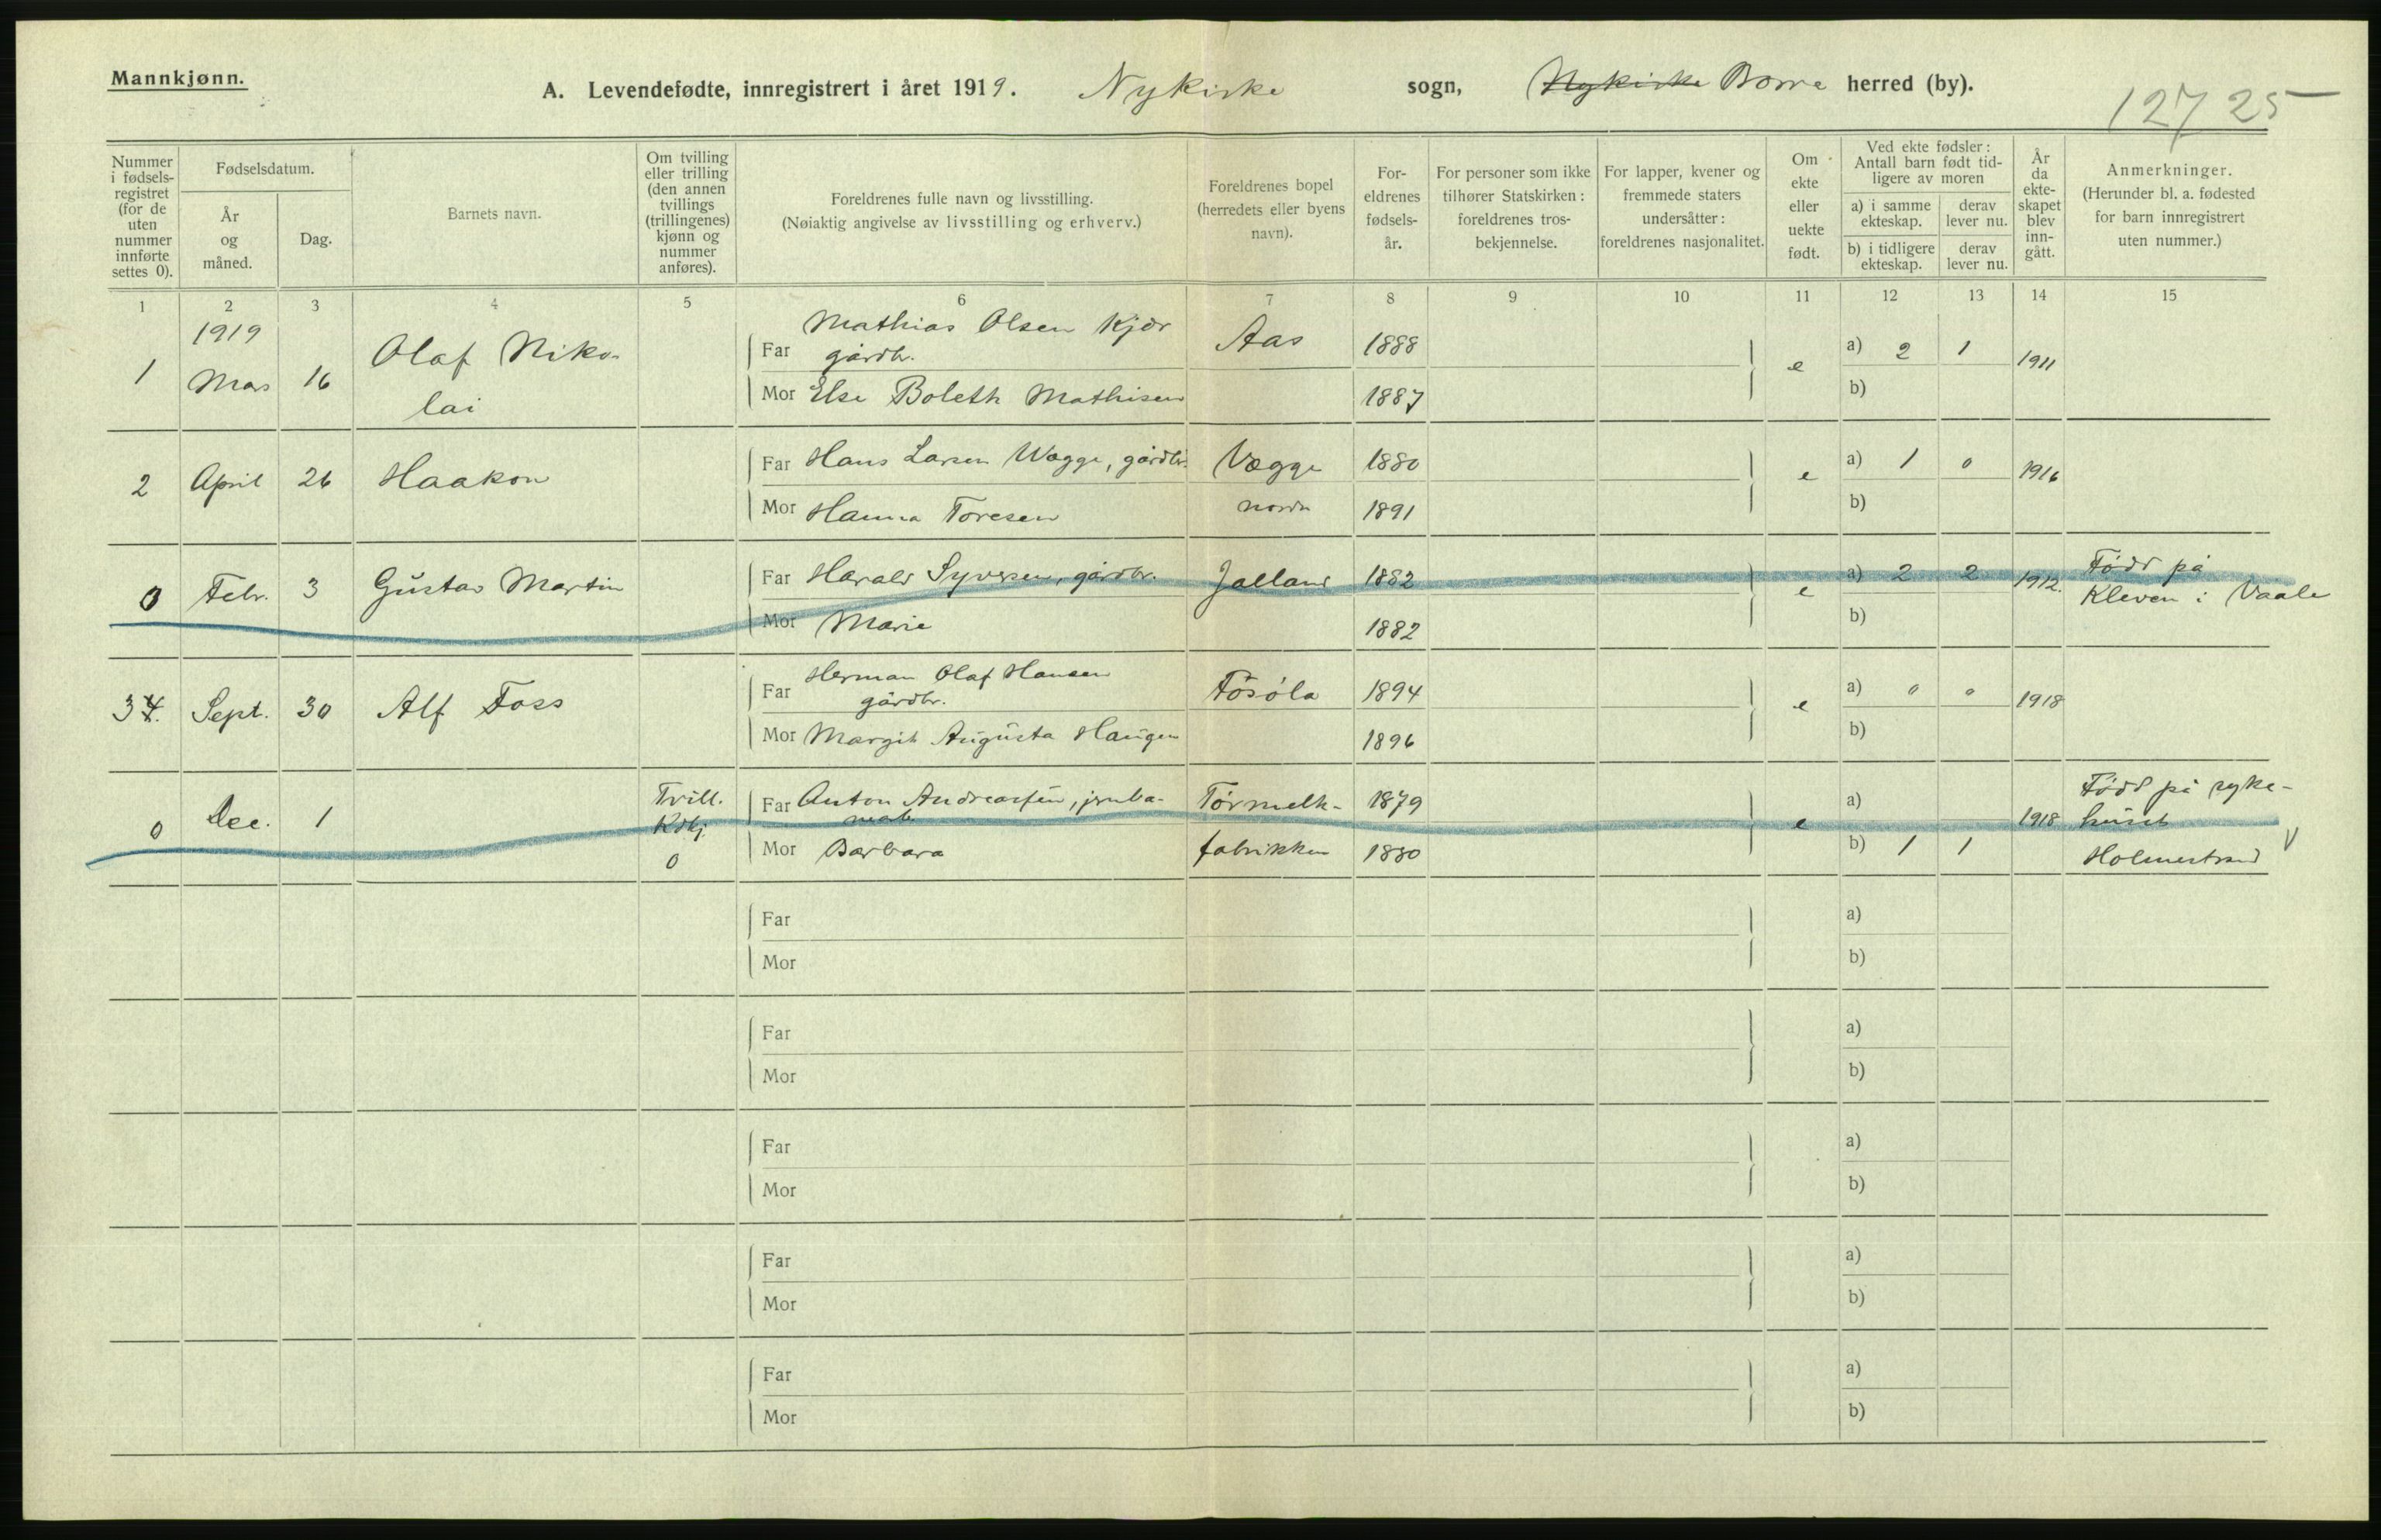 Mannkjønn.
A. Levendefødte, innregistrert i året 1919. Nykirke sogn, Nykirke Borre herred (by).
12725
Nummer i fødsels-registret (for de uten nummer innførte settes 0).
Fødselsdatum.
År og måned.
Dag.
Barnets navn.
Om tvilling eller trilling (den annen tvillings (trillingenes) kjønn og nummer anføres).
Foreldrenes fulle navn og livsstilling.
(Nøiaktig angivelse av livsstilling og erhverv.)
Foreldrenes bopel (herredets eller byens navn).
For-eldrenes fødsels-år.
For personer som ikke tilhører Statskirken: foreldrenes tros-bekjennelse.
For lapper, kvener og fremmede staters undersåtter: foreldrenes nasjonalitet.
Om ekte eller uekte født.
Ved ekte fødsler: Antall barn født tid-ligere av moren
a) i samme ekteskap.
derav lever nu.
b) i tidligere ekteskap.
derav lever nu.
År da ekte-skapet blev inn-gått.
Anmerkninger.
(Herunder bl. a. fødested for barn innregistrert uten nummer.)
1 2 3 4 5 6 7 8 9 10 11 12 13 14 15
1 1919 Mars 16 Olaf Niko-lai
Far Mathias Olsen Kjær gårdbr. Aas 1888 e a) 2 1 1911
Mor Else Boleth Mathisen 1887 b)
2 April 26 Haakon
Far Hans Larsen Wegge, gårdbr. Vegge nordr 1880 e a) 1 0 1916
Mor Hanna Toresen 1891 b)
0 Febr. 3 Gustav Martin
Far Harald Syversen, gårdbr. Jalland 1882 e a) 2 2 1912. Född på Kleven i Vaale
Mor Marie 1882 b)
34. Sept. 30 Alf Foss
Far Herman Olaf Hansen gårdbr. 1894 e a) 0 0 1918
Mor Margit Augusta Haugen 1896 b)
0 Dec. 1 Tvill. Kvkj. 0
Far Anton Andreassen, Törmelk-fabrikken 1879 e a) 1918 Född på syke-huset Holmestrand
Mor Barbara 1880 b) 1 1 V
Far a)
Mor b)
Far a)
Mor b)
Far a)
Mor b)
Far a)
Mor b)
Far a)
Mor b)